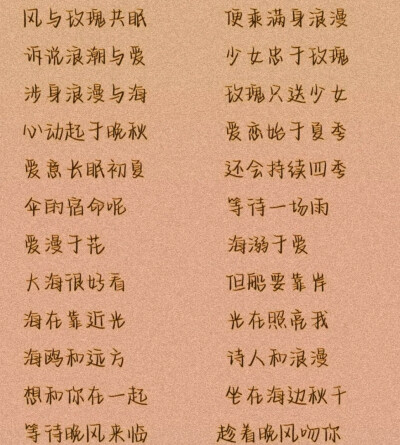 风与玫瑰共眠 便乘满身浪漫
诉说浪潮与爱 少女忠于玫瑰
涉身浪漫与海 玫瑰只送少女
心动起于晚秋 爱恋始于夏季
爱意长眠初夏 还会持续四季
伞的宿命呢 等待一场雨
爱漫于花 海溺于爱
大海很好看 但船要靠岸
海在靠近光 光在照亮我
海鸥和远方 诗人和浪漫
想和你在一起 坐在海边秋千
等待晚风来临 趁着晚风吻你